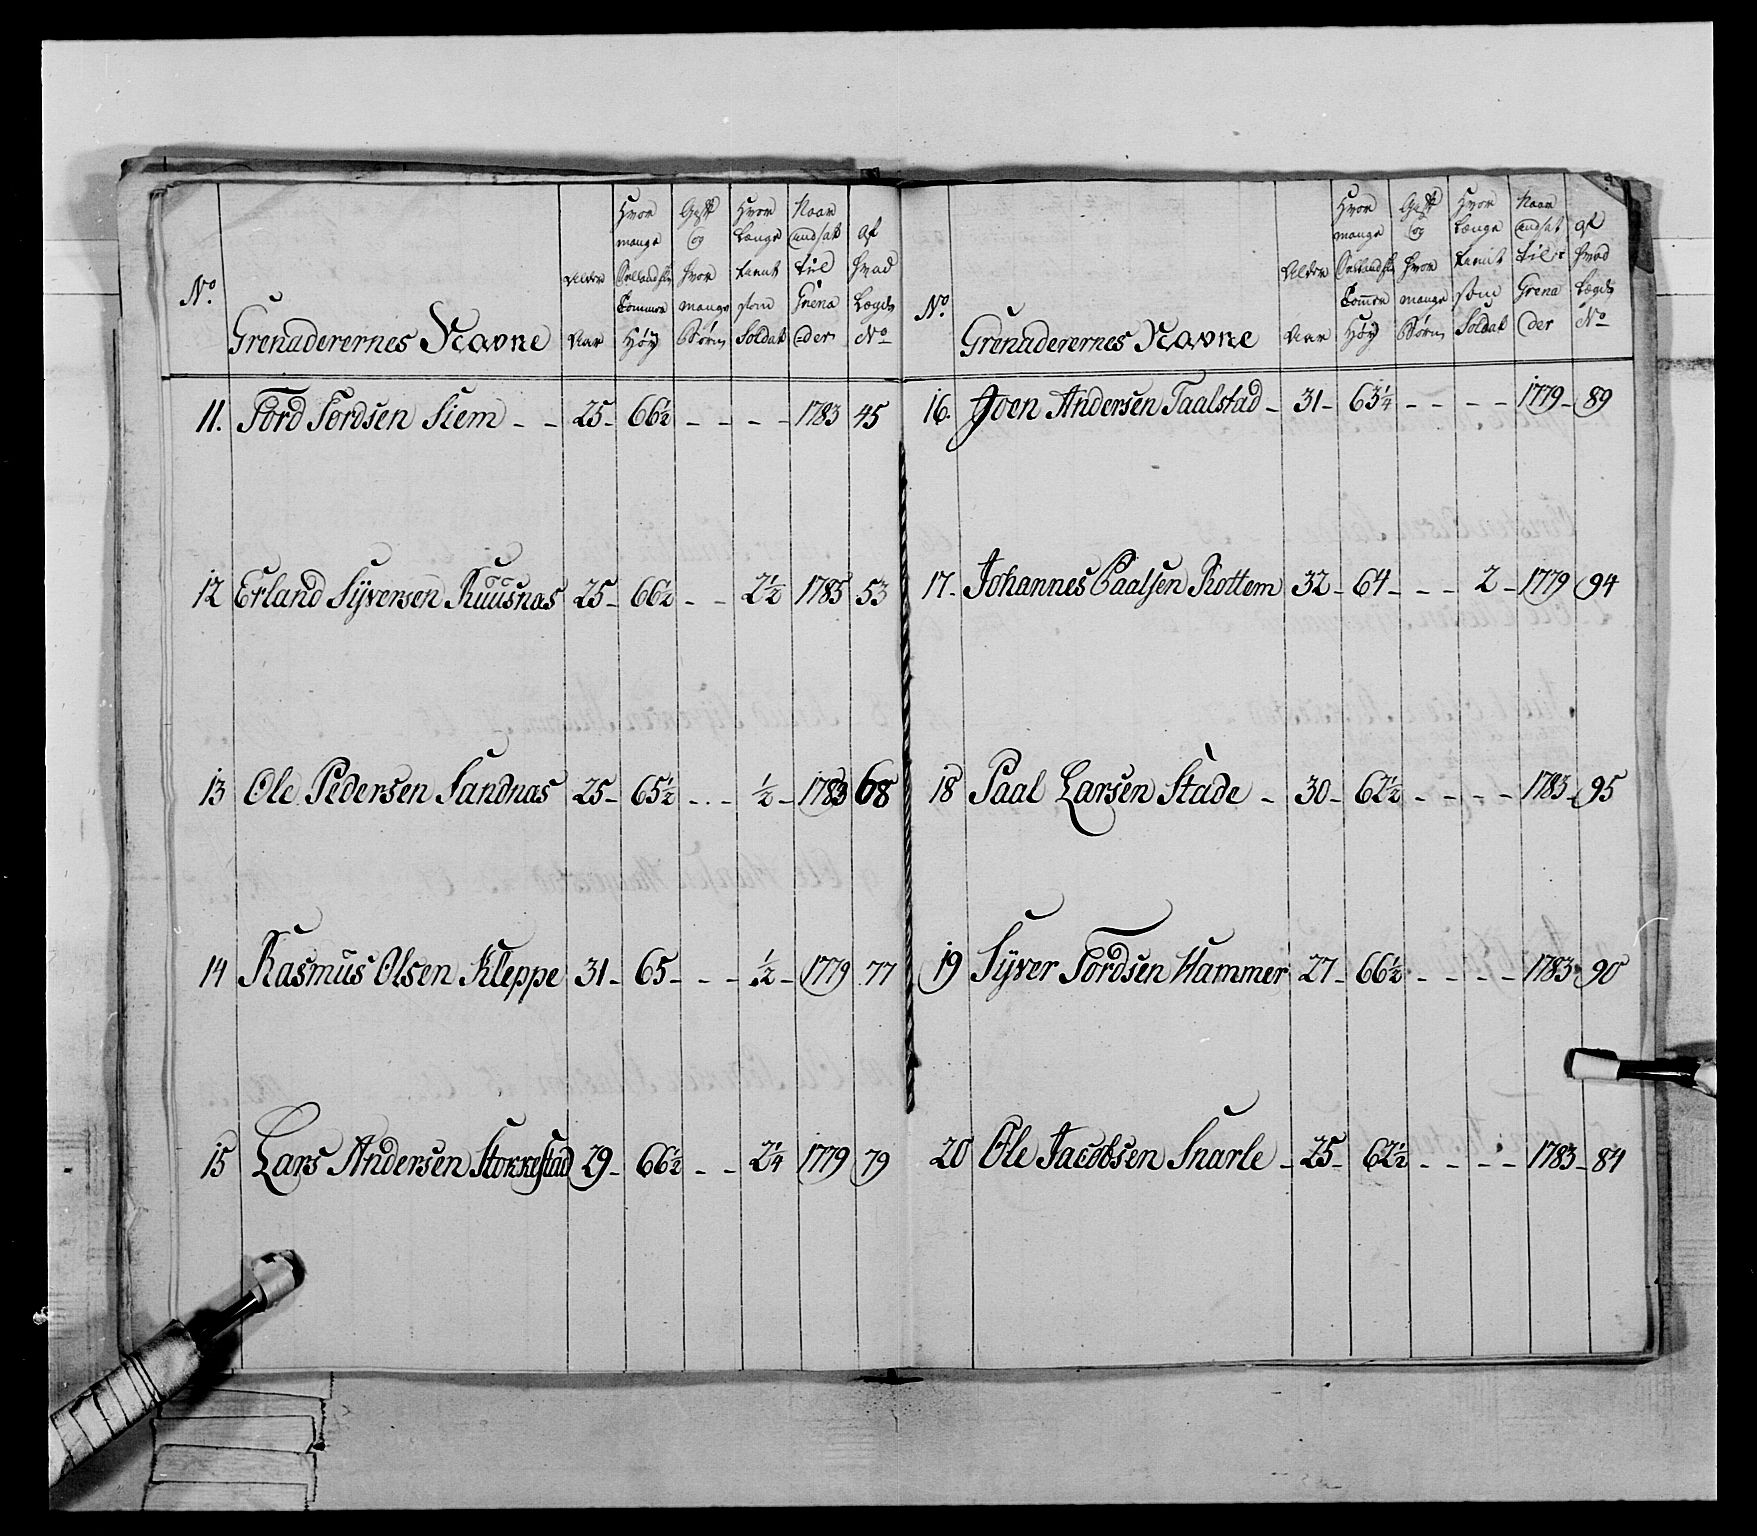 No. Grenaderernes Navne Alder Aar Hvor mange Siellandske Tommer Høy Gift og Hvor mange Børn Hvor Længe tient som Soldat Naar andsat til Grenader af Hvad Lægds No
11. Tord Tordsen Siem - - 25- 66½ - - - - 1783 45
12 Erland Syversen Ruusnæs 25- 66½ - - 2½ 1783 53
13 Ole Pedersen Sandnæs 25- 65½ - - ½ - 1783 68
14 Rasmus Olsen Kleppe 31- 65- - - ½ - 1779 77
15 Lars Andersen Storkestad 29- 66½ - - 2¼ 1779 79
No. Grenaderernes Navne Alder Aar Hvor mange Siellandske Tommer Høy Gift og Hvor mange Børn Hvor Længe tient som Soldat Naar andsat til Grenader af Hvad Lægds No
16. Joen Andersen Taalstad - 31- 63¼ - - - - 1779- 89
17- Johannes Paalsen Rottem 32- 64- - - 2- 1779 94
18 Paal Larsen Stade - 30- 62½ - - - - 1783- 95
19 Syver Tordsen Hammer 27- 66½ - - - - 1783- 90
20 Ole Jacobsen Snarle - 25- 62½ - - - - 1783- 84